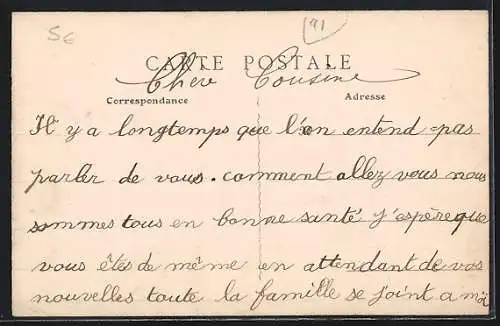 5€
91
CARTE POSTALE
Chère Cousine
Correspondance
Adresse
Il y a longtemps que l'on entend pas
parler de vous. comment allez vous nous
sommes tous en bonne santé j'espère que
vous êtes de même en attendant de vos
nouvelles toute la famille se joint a moi